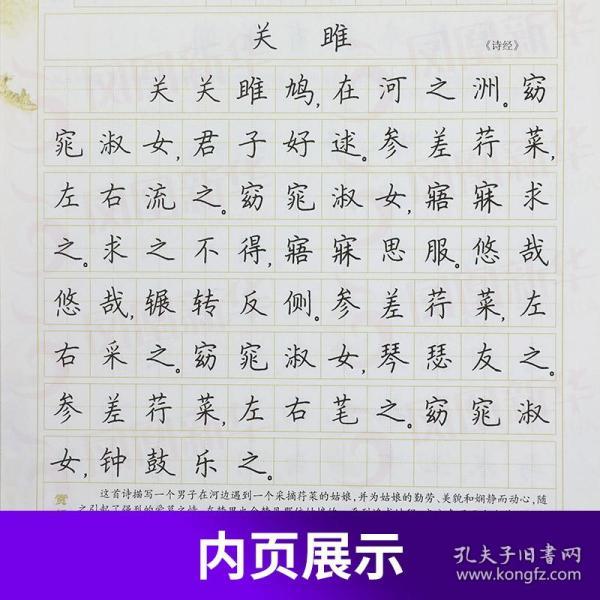 关 雎
《诗经》
关关雎鸠,在河之洲。窈
窕淑女,君子好逑。参差荇菜,
左右流之。窈窕淑女,寤寐求
之。求之不得,寤寐思服。悠哉
悠哉,辗转反侧。参差荇菜,左
右采之。窈窕淑女,琴瑟友之。
参差荇菜,左右芼之。窈窕淑
女,钟鼓乐之。
这首诗描写一个男子在河边遇到一个采摘荇菜的姑娘,并为姑娘的勤劳、美貌和娴静而动心,随
内页展示
孔夫子旧书网
www.kongfz.com